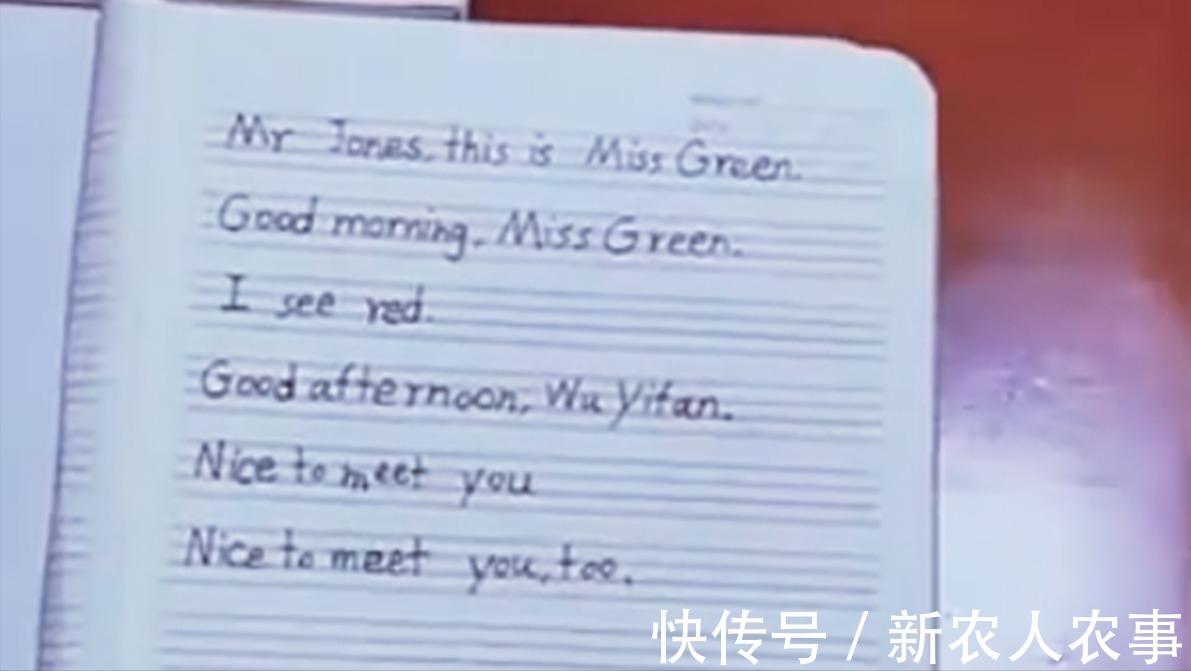 Mr Jones, this is Miss Green.
Good morning, Miss Green.
I see red.
Good afternoon, Wu Yifan.
Nice to meet you
Nice to meet you, too.
快传号 / 新农人农事